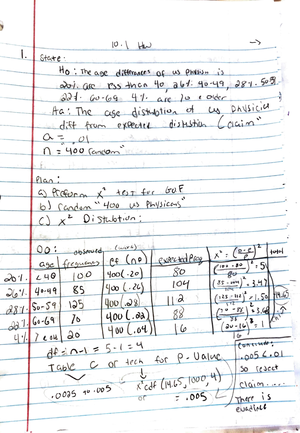 10.1 HW →
1. State:
Ho: The age differences of US Physician is
20% are less than 40, 26% 40-49, 28% 50-59
22% 60-69 4% are 70 & older
Ha: The age distribution of US physicians
diff from expected distribution (claim"
a = .01
n = 400 random"
Plan:
a) Preform x² test for GOF
b) random "400 US Physicians"
c) x² Distribution:
Do: observed
age frequency expected freq total
20% <40 100 400(.20) 80
26% 40-49 85 400(.26) 104
28% 50-59 125 400(.28) 112
22% 60-69 70 400(.22) 88
4% 20 400(.04) 16
df = n-1 = 5-1 = 4
Table C or tech for P-Value
.0025 to .005 x²cdf (14.65, 1000, 4)
or = .005
.005 < .01
so reject
claim...
There is